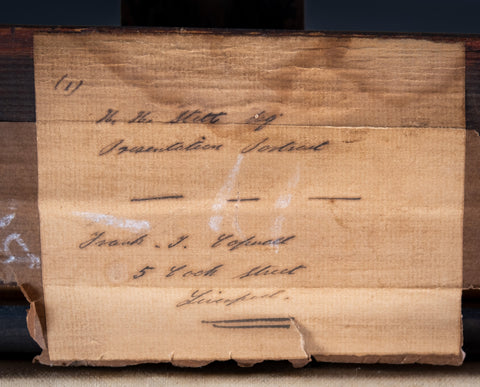 (1)
H. H. Stitt Esq
Presentation Portrait
Frank. T. Copnall
5 Cook Street
Liverpool.